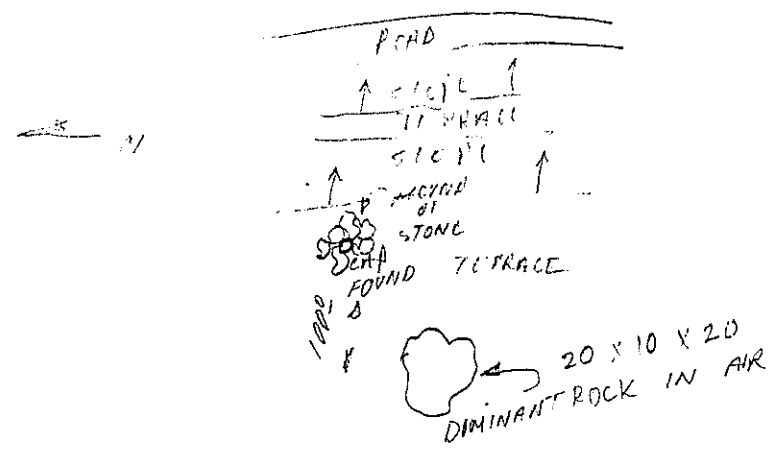 ROAD
SLOPE
TERRACE
SLOPE
N
MOUND
OF
STONE
CAP
FOUND TERRACE
1000'
20 X 10 X 20
DIMINANT ROCK IN AIR